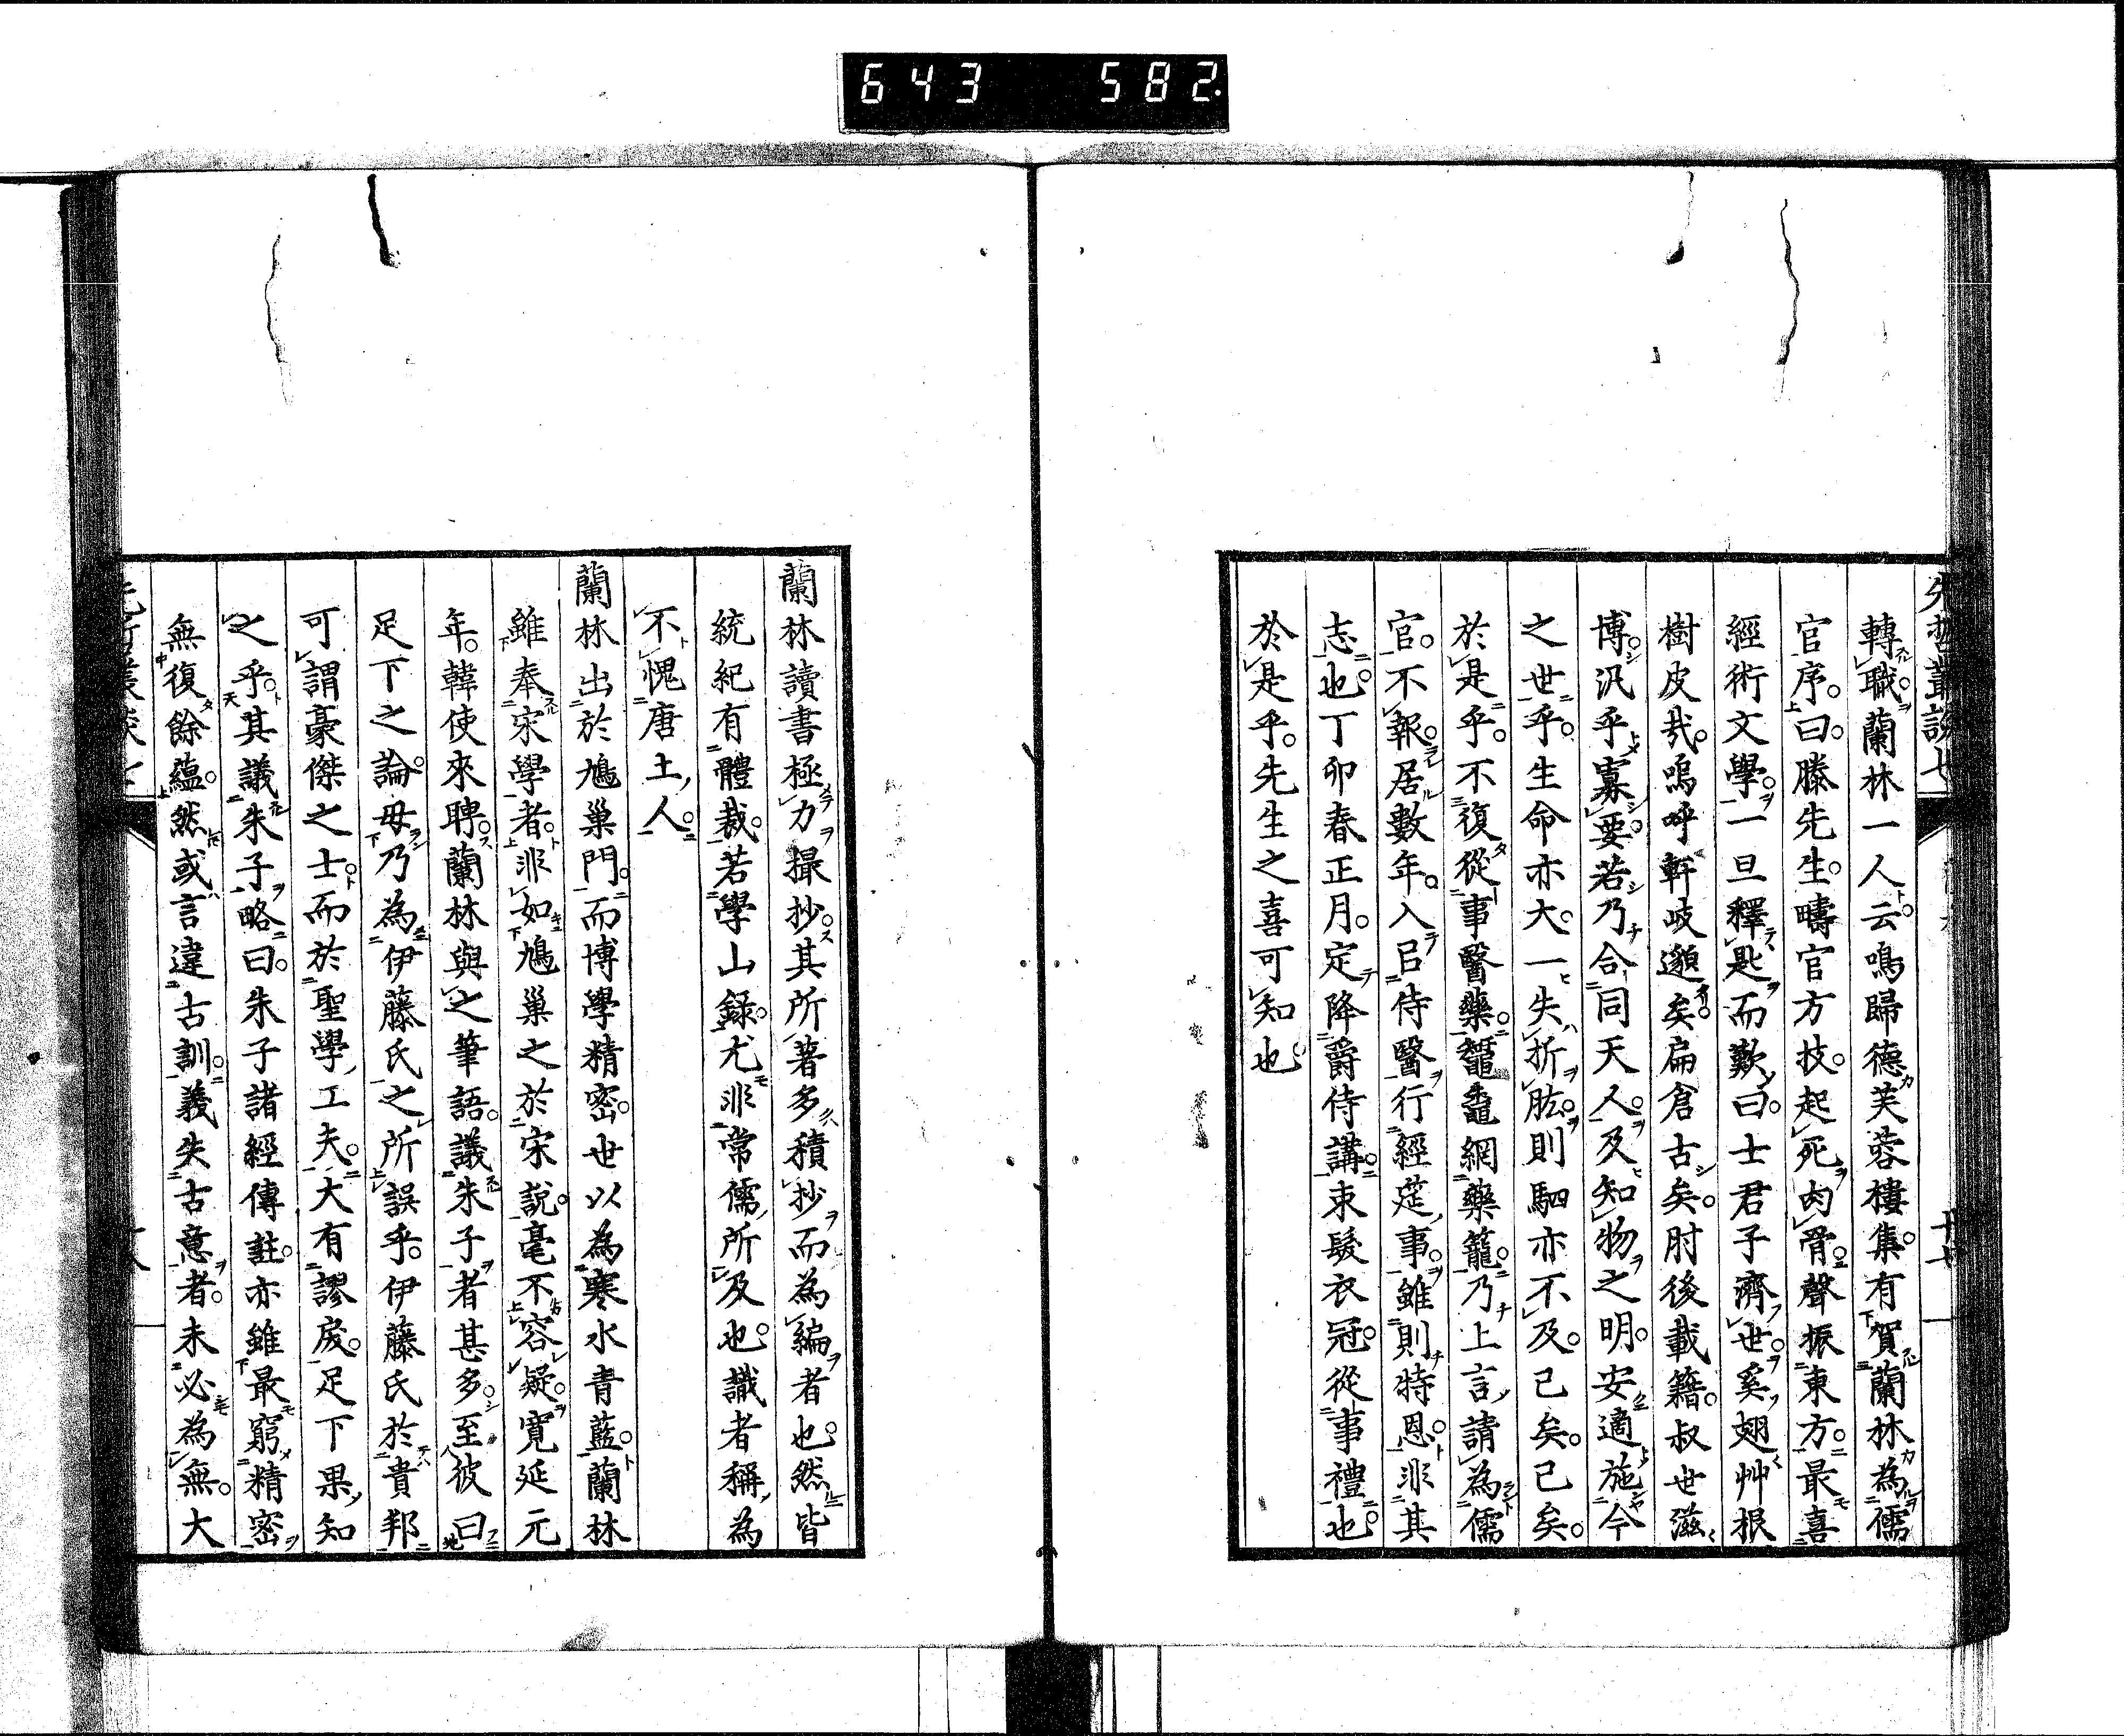 643 582.
先哲叢談七
轉職。蘭林一人云。鳴歸德芙蓉樓集。有賀蘭林為儒
官序。曰。滕先生。疇官方技。起死肉骨。聲振東方。最喜
經術文學。一旦釋匙而歎曰。士君子濟世。奚翅艸根
樹皮哉。嗚呼軒岐邈矣。扁倉古矣。肘後載籍。叔世滋
博。汎乎寡要。若乃合同天人。及知物之明。安適施今
之世乎。生命亦大。一失折肱。則駟亦不及。已矣。已矣。
於是乎。不復從事醫藥。蠶龜網藥籠。乃上言請為儒
官。不報。居數年。入侍醫行經筵事。雖則特恩。非其
志也。丁卯春正月。定降爵侍講。束髮衣冠。從事禮也。
於是乎。先生之喜可知也。
蘭林讀書極力撮抄。其所著多積抄而為編者也。然皆
統紀有體裁。若學山錄。尤非常儒所及也。識者稱為
不愧唐土人。
蘭林出於鳩巢門。而博學精密。世以為寒水青藍。蘭林
雖奉宋學者。非如鳩巢之於宋說。毫不容疑。寬延元
年。韓使來聘。蘭林與之筆語。議朱子者甚多。至彼曰
足下之論。毋乃為伊藤氏之所誤乎。伊藤氏於貴邦
可謂豪傑之士。而於聖學工夫。大有謬戾。足下果知
之乎。其議朱子略曰。朱子諸經傳註。亦雖最窮精密
無復餘蘊。然或言違古訓。義失古意者。未必為無。大